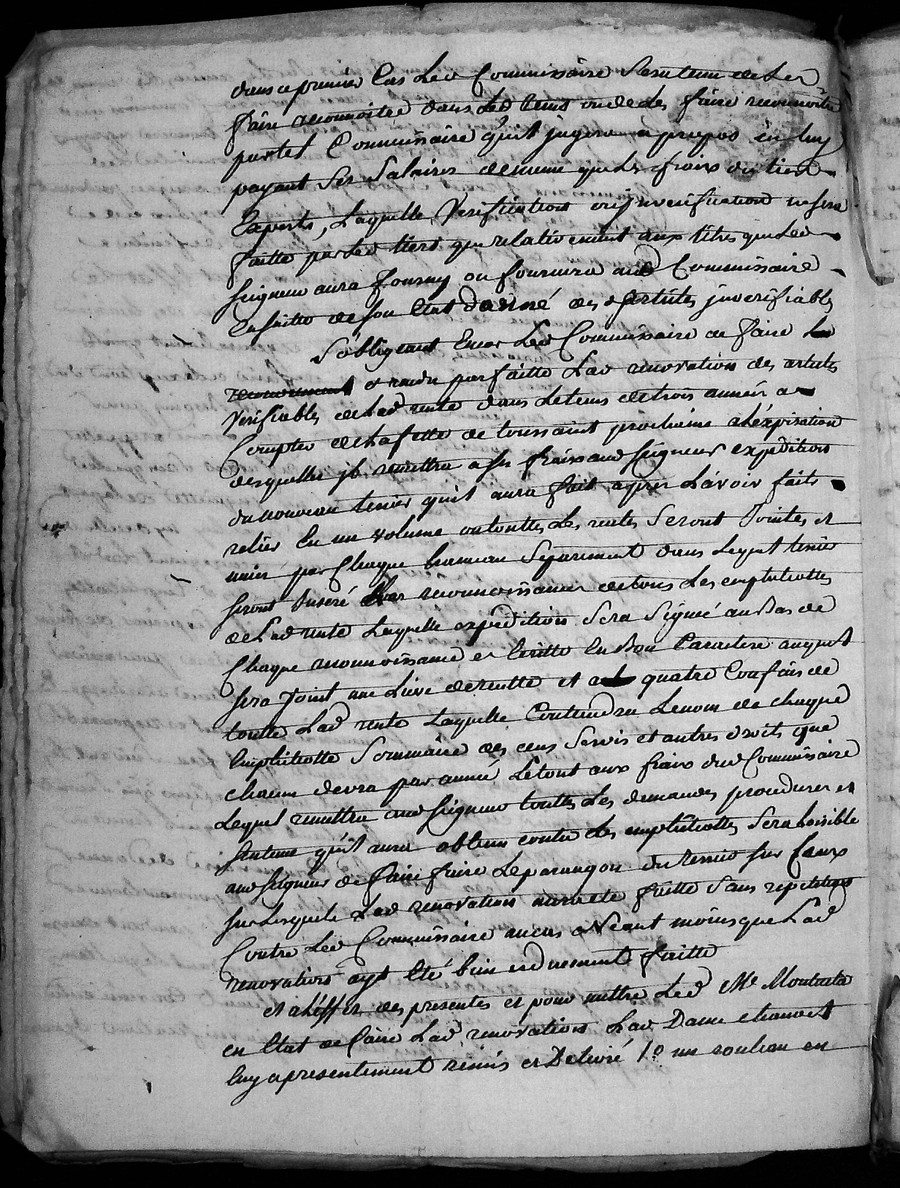 dans ce premier Cas Led Commissaire Sera tenu de Les
faire reconnoitre dans Led tems ou de Les faire reconnoitre
par tel Commissaire qu'il jugera a propos en luy
payant Ses Salaires de meme que Les fraix du tier
Experts, Laquelle Verification ou jnverification ne sera
faitte par Led tiers que relativement aux titres que Led
Seigneur aura fourny ou fournira aud Commissaire
Ensuitte de son Etat des articles jnverifiables
S'obligeant Encor Led Commissaire de faire
et rendre parfaitte Lad renovation des articles
Verifiables de Lad rente dans Le tems de trois années a
Compter de La fette de toussaint prochaine a L'expiration
desquelles jl remettra a ses fraix aud Seigneur expedition
du nouveau terrier qu'il aura fait apres L'avoir fait
relier En un volume ou touttes Les rentes Seront Jointes et
unies par Chaque hameau Separement dans Lequel terrier
Seront Inseré Les reconnoissances de tous Les emphiteottes
de Lad rente Laquelle expedition Sera Signé au Bas de
Chaque reconnoissance et Ecritte En Bon Caractere auquel
Sera Joint une Lieve de reutte et a quatre Confins de
toutte Lad rente Laquelle Contiendra Le nom de chaque
Emphiteotte Sommaire des cens Servis et autres droits que
chacun devra par année Le tout aux fraix dud Commissaire
Lequel remettra aud Seigneur touttes Les demandes procedures et
Sentence qu'il aura obtenu contre Les emphiteottes Sera Loisible
aud Seigneur de faire faire Le parangon du terrier Sur Ceux
Sur Lesquels Lad renovation aura ete faitte Sans repetition
Contre Led Commissaire au cas Neant moins que Lad
renovation ayt Eté bien et duement faitte
et a L'effet des presentes et pour mettre Led Me
en Etat de faire Lad renovation Lad Dame
luy a presentement remis et Delivré 1o un en